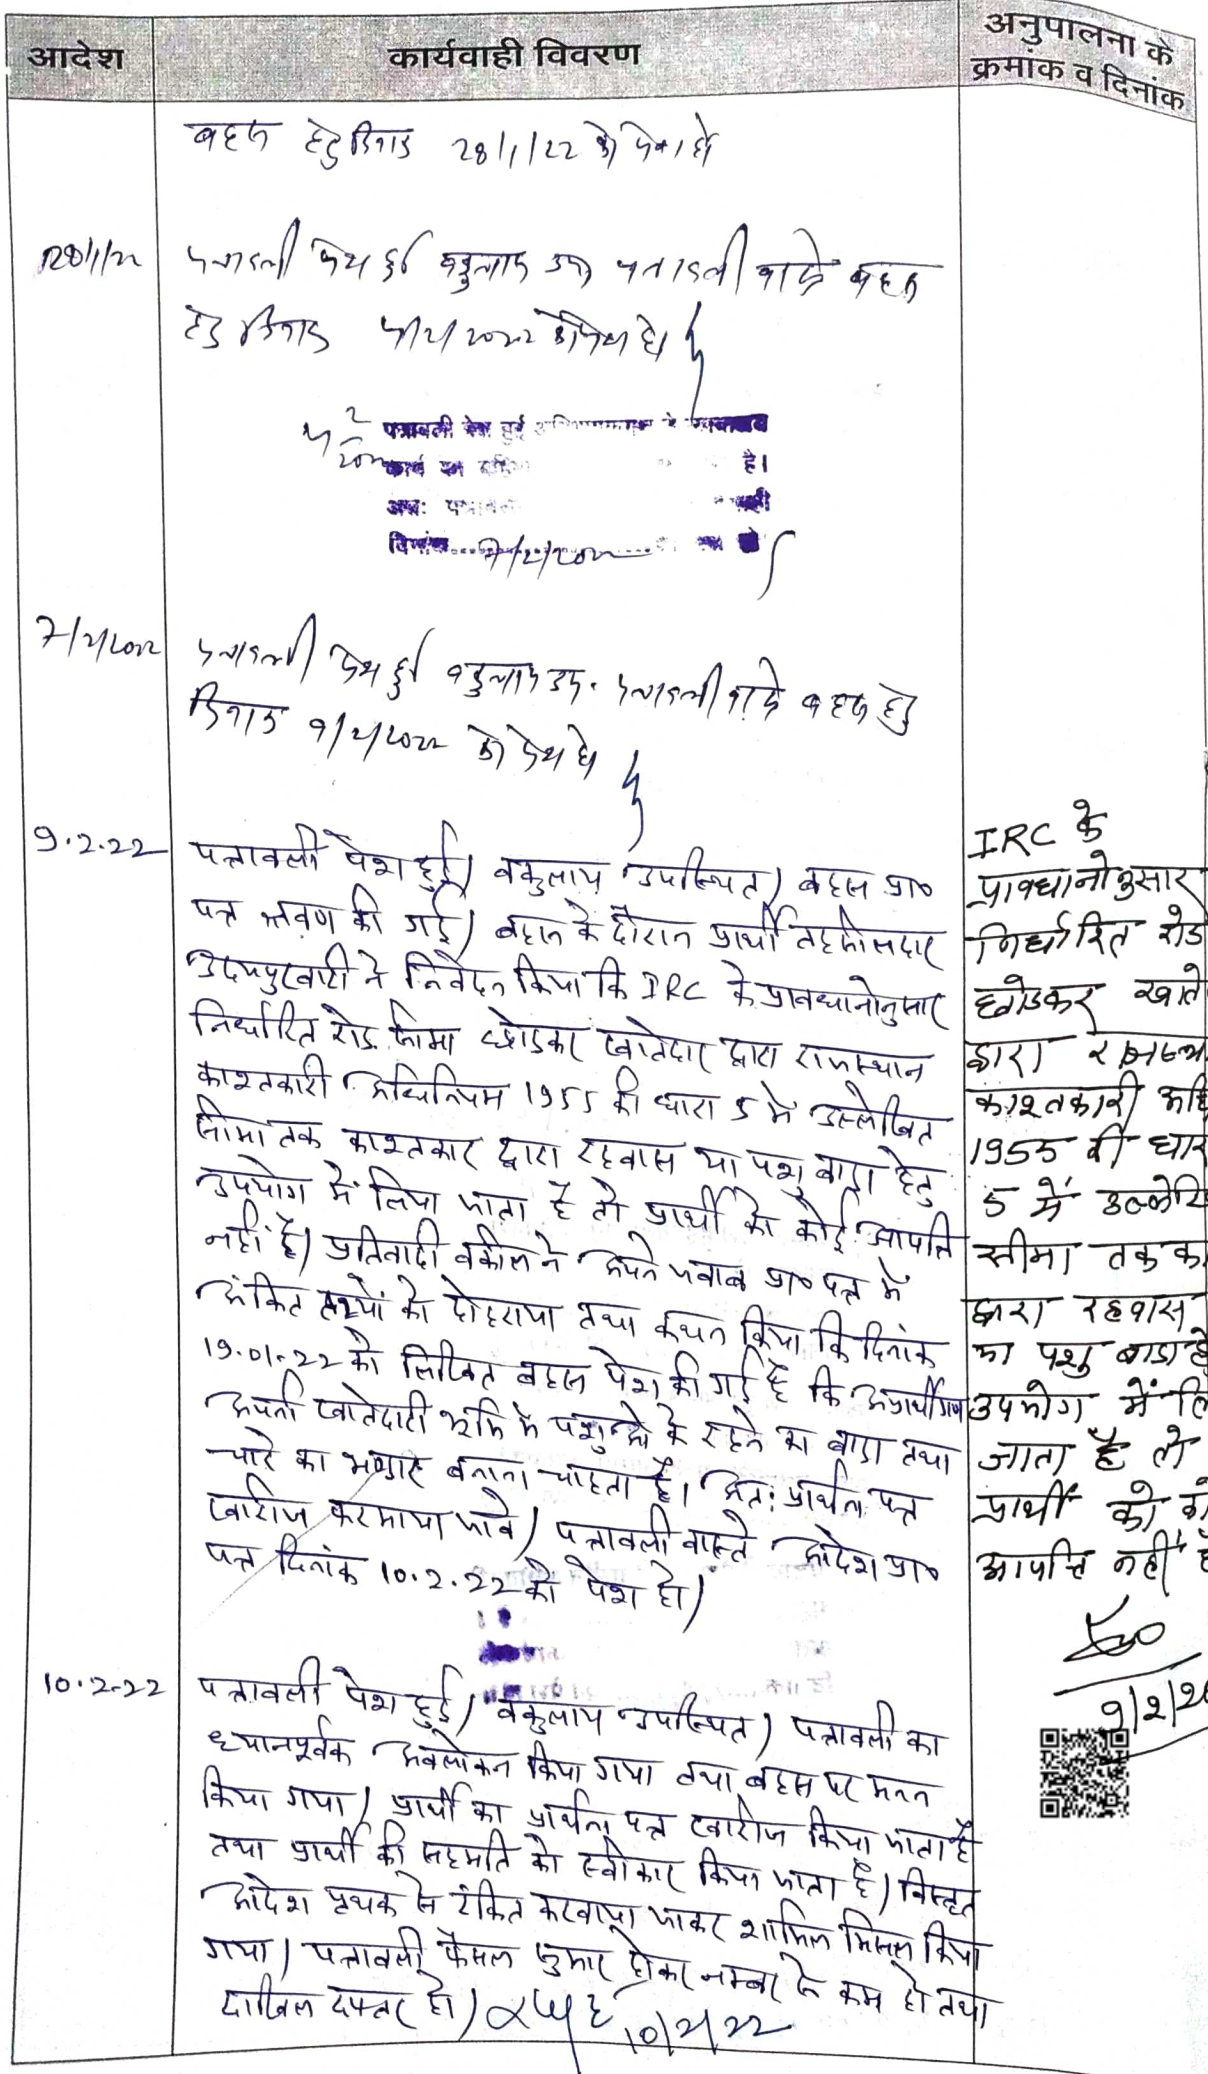 आदेश
कार्यवाही विवरण
अनुपालना के
क्रमांक व दिनांक
बहस हेतु दिनांक 28/1/22 को पेश हो
28/1/22
पत्रावली पेश हुई वकुलाय उप० पत्रावली वास्ते बहस
हेतु दिनांक 4/2/2022 को पेश हो।
4/2/2022
पत्रावली पेश हुई
कार्य है।
अतः
दिनांक 7/2/2022
7/2/2022
पत्रावली पेश हुई वकुलाय उप. पत्रावली वास्ते बहस हेतु
दिनांक 9/2/2022 को पेश हो
9.2.22
पत्रावली पेश हुई। वकुलाय उपस्थित। बहस प्रा०
पत्र श्रवण की गई। बहस के दौरान प्रार्थी तहसीलदार
उदयपुरवाटी ने निवेदन किया कि IRC के प्रावधानोनुसार
निर्धारित रोड सीमा छोडकर खातेदार द्वारा राजस्थान
काश्तकारी अधिनियम 1955 की धारा 5 में उल्लेखित
सीमा तक काश्तकार द्वारा रहवास या पशु बाड़ा हेतु
उपयोग में लिया जाता है तो प्रार्थी को कोई आपत्ति
नहीं है। प्रतिवादी वकील ने अपने जवाब प्रा० पत्र में
अंकित तथ्यों को दोहराया तथा कथन किया कि दिनांक
19.01.22 को लिखित बहस पेश की गई है कि अप्रार्थीगण
अपनी खातेदारी भूमि में पशुओं के रहने का बाड़ा तथा
चारे का भण्डार बनाना चाहता है। अतः प्रार्थना पत्र
खारीज फरमाया जावे। पत्रावली वास्ते आदेश प्रा०
पत्र दिनांक 10.2.22 को पेश हो।
IRC के
प्रावधानोनुसार
निर्धारित रोड
छोडकर खाते
द्वारा
काश्तकारी अधि
1955 की धार
5 में उल्लेखि
सीमा तक का
द्वारा रहवास
या पशु बाडा हे
उपयोग में लि
जाता है तो
प्रार्थी को को
आपत्ति नहीं है
9/2/2
10.2.22
पत्रावली पेश हुई। वकुलाय उपस्थित। पत्रावली का
ध्यानपूर्वक अवलोकन किया गया तथा बहस पर मनन
किया गया। प्रार्थी का प्रार्थना पत्र खारीज किया जाता है
तथा प्रार्थी की सहमति को स्वीकार किया जाता है। विस्तृत
आदेश पृथक से टंकित करवाया जाकर शामिल मिसल किया
गया। पत्रावली फैसल शुमार होकर नम्बर से कम हो तथा
दाखिल दफ्तर हो।
10/2/22